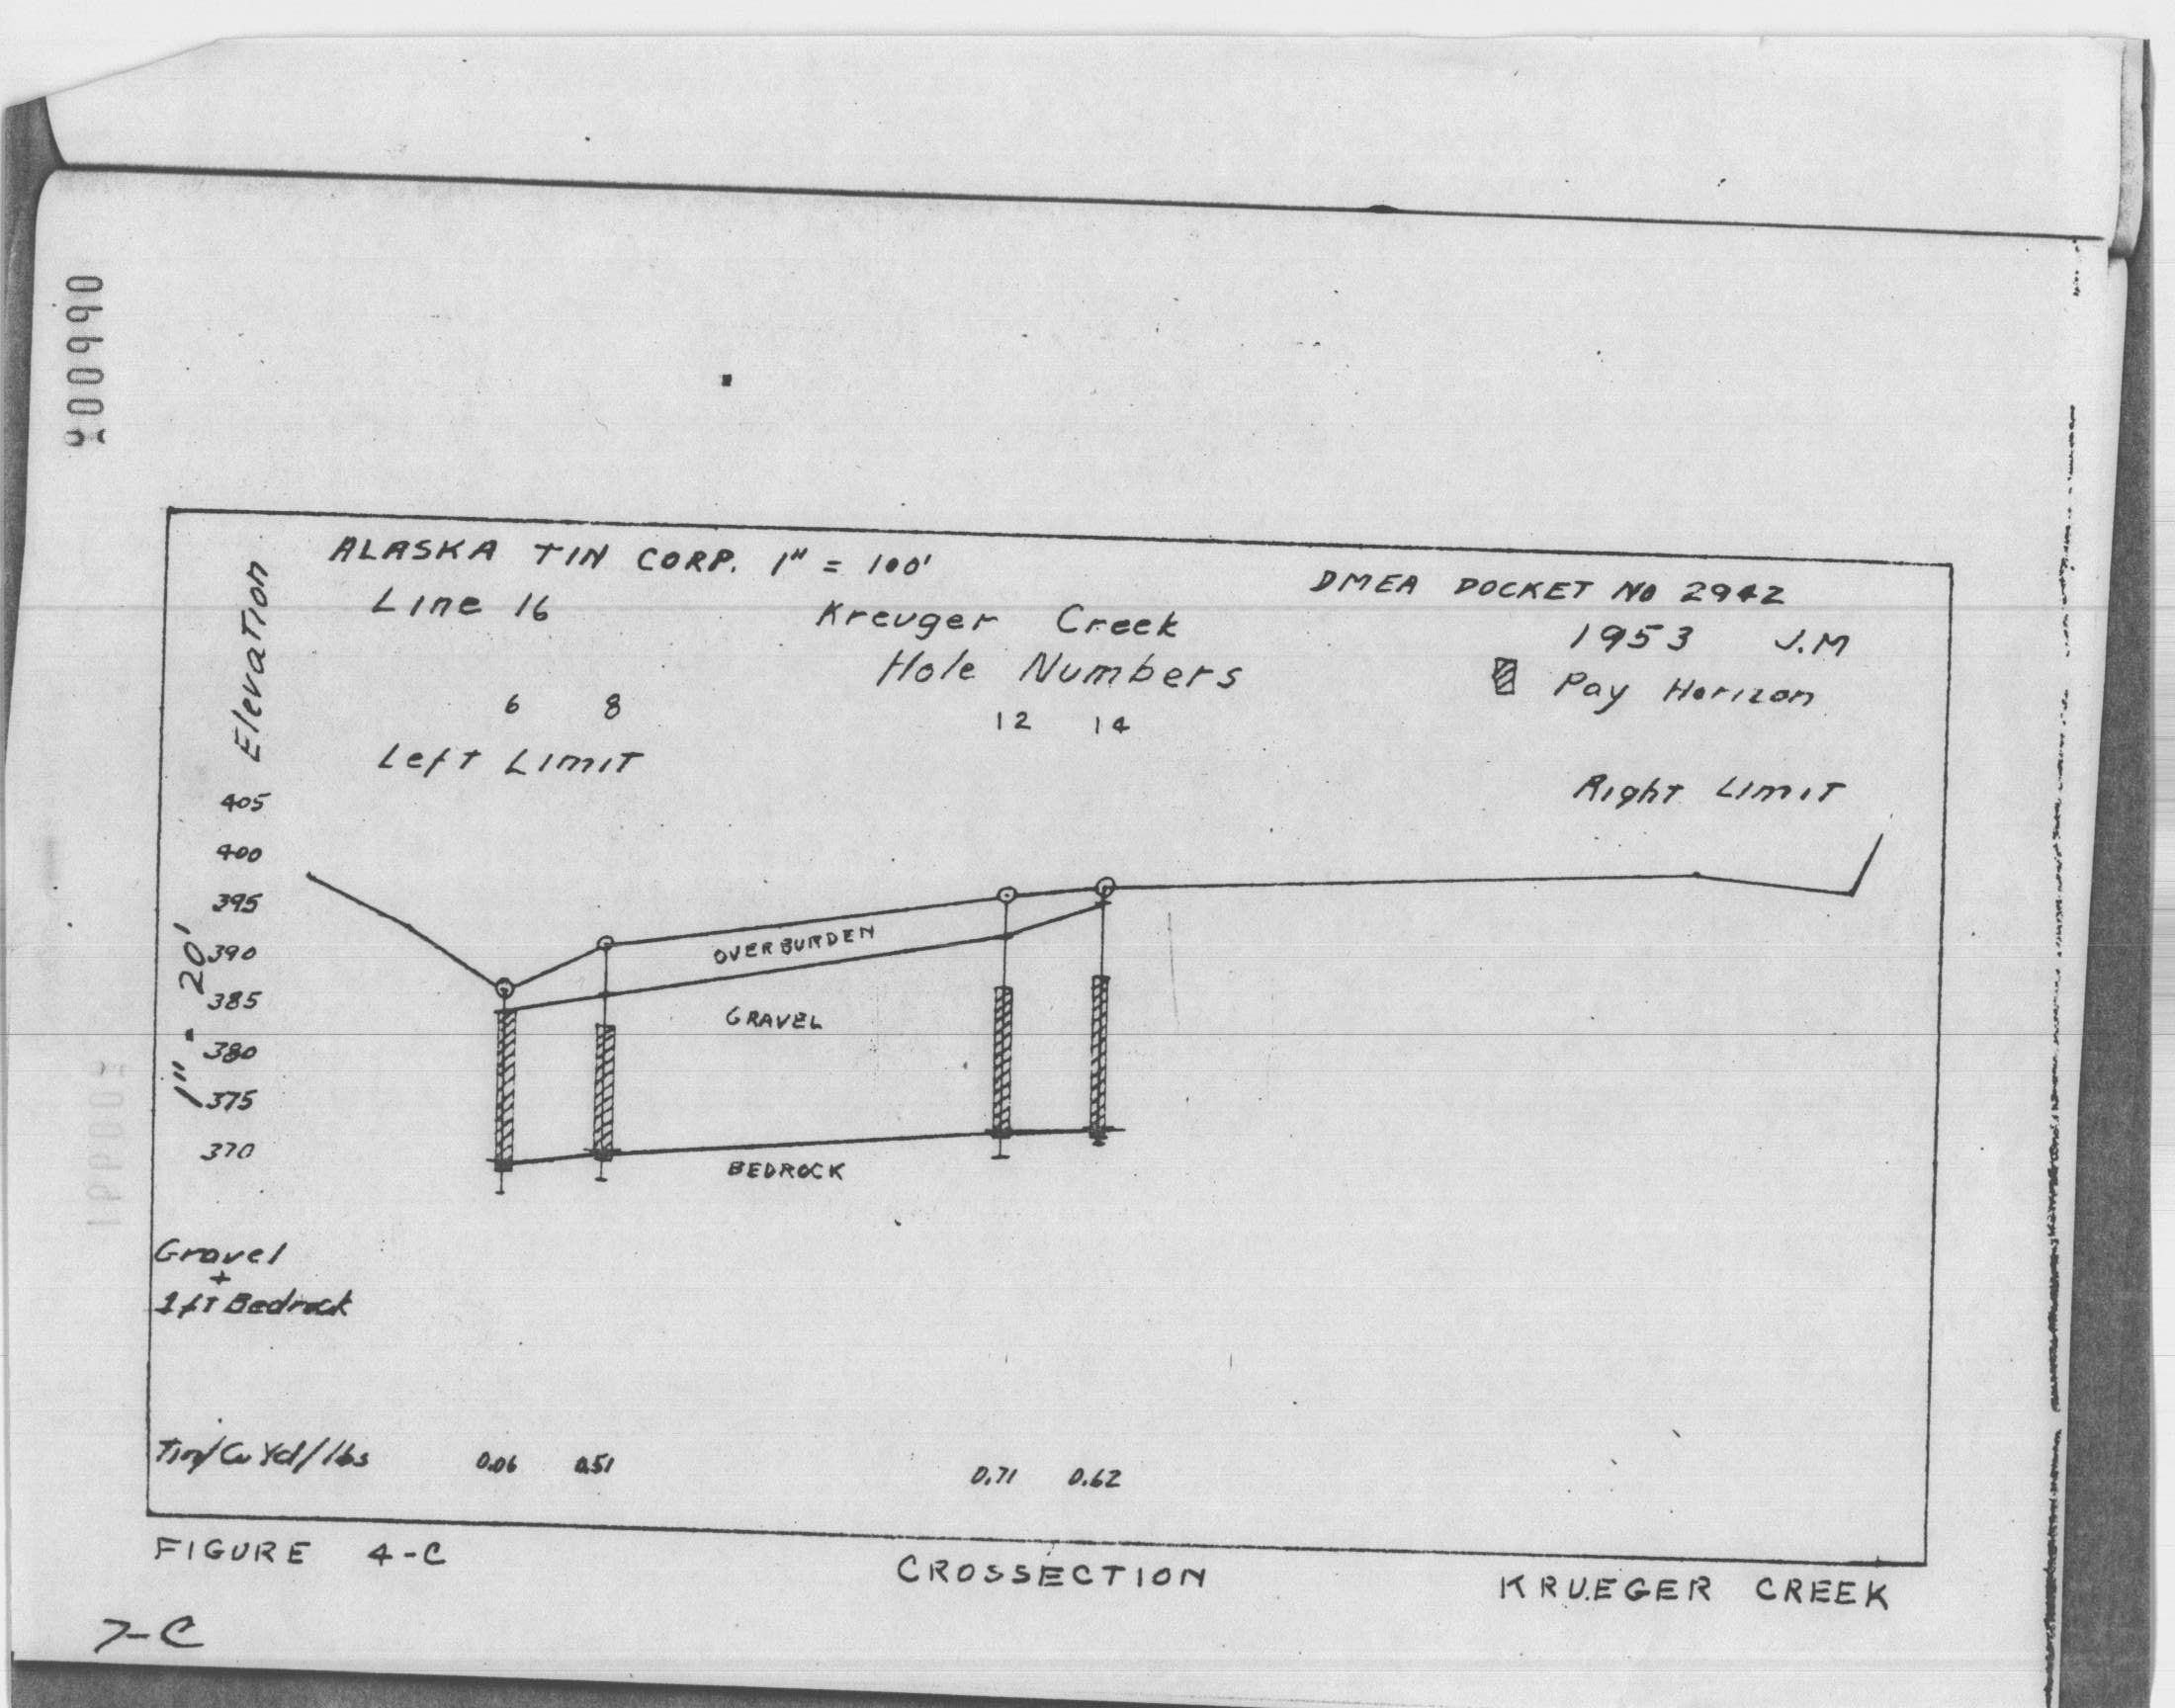 ALASKA TIN CORP. 1" = 100'
DMEA DOCKET NO 2942
Line 16
Kreuger Creek
1953 J.M
Hole Numbers
Pay Horizon
6 8 12 14
Left Limit
Right Limit
Elevation
405
400
395
390
385
380
375
370
1" - 20'
OVERBURDEN
GRAVEL
BEDROCK
Gravel
+
1 ft Bedrock
Tin/Cu Yd/lbs 0.06 0.51 0.71 0.62
FIGURE 4-C
CROSSECTION
KRUEGER CREEK
7-C